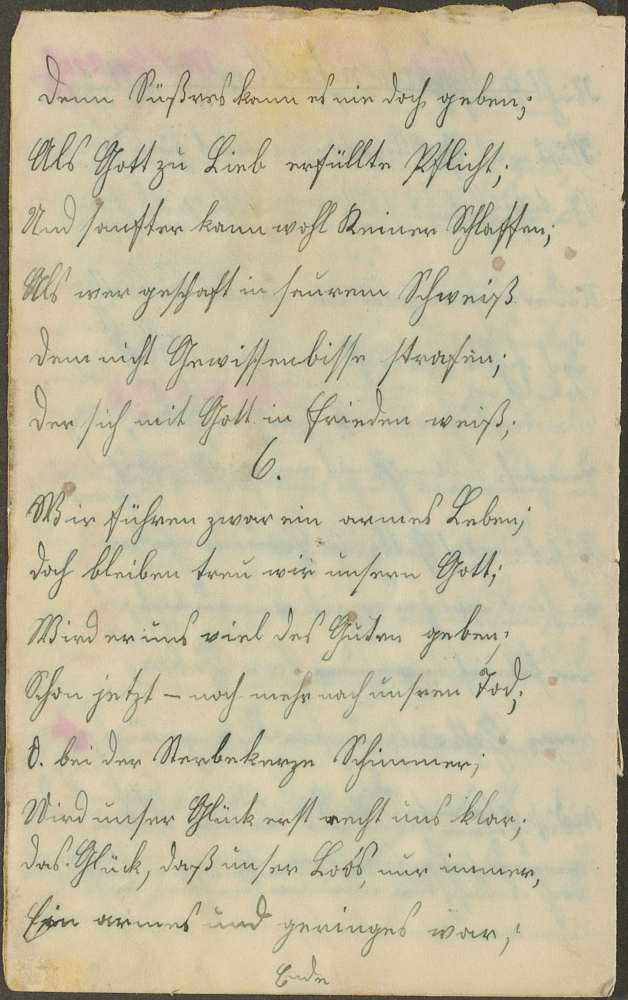 Denn Süßres kann es nie doch geben;
Als Gott zu Lieb erfüllte Pflicht;
Und sanfter kann wohl Keiner Schlaffen;
Als wer geschaft in saurem Schweiß
Dem nicht Gewissenbisse strafen;
Der sich mit Gott in Frieden weiß;
6.
Wir führen zwar ein armes Leben;
doch bleiben treu wir unsern Gott;
Wird er uns viel des Guten geben;
Schon jetzt – noch mehr nach unsren Tod;
O. bei der Sterbekerze Schimmer;
Wird unser Glück erst recht uns klar;
das Glück, daß unser Loos, nur immer,
Ein armes und geringes war;
Ende